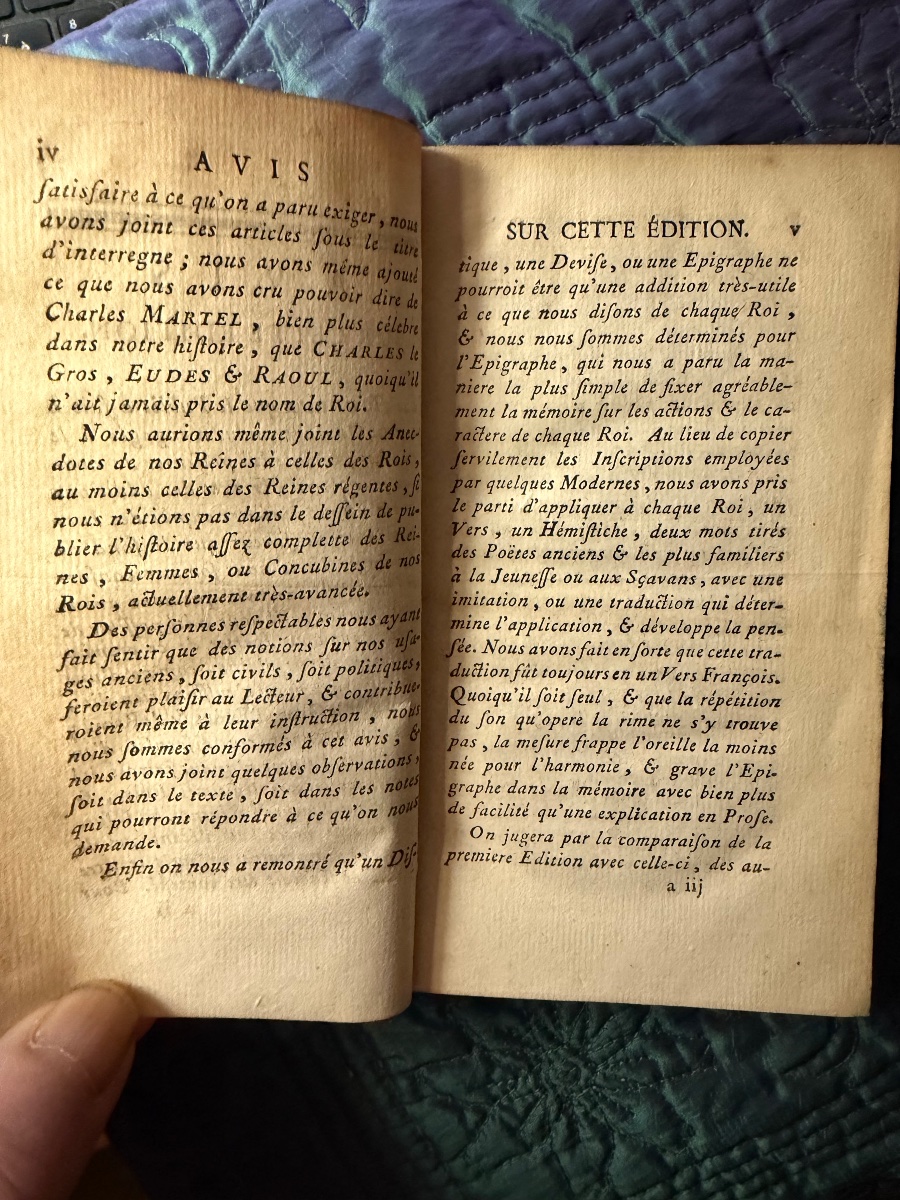 iv A V I S
ſatisfaire à ce qu'on a paru exiger, nous
avons joint ces articles ſous le titre
d'interregne ; nous avons même ajouté
ce que nous avons cru pouvoir dire de
Charles MARTEL , bien plus célebre
dans notre hiſtoire , que CHARLES le
Gros , EUDES & RAOUL , quoiqu'il
n'ait jamais pris le nom de Roi.
Nous aurions même joint les Anec-
dotes de nos Reines à celles des Rois,
au moins celles des Reines régentes , ſi
nous n'étions pas dans le deſſein de pu-
blier l'hiſtoire aſſez complette des Rei-
nes , Femmes , ou Concubines de nos
Rois , actuellement très-avancée.
Des perſonnes reſpectables nous ayant
fait ſentir que des notions ſur nos uſa-
ges anciens , ſoit civils , ſoit politiques,
feroient plaiſir au Lecteur , & contribue-
roient même à leur inſtruction , nous
nous ſommes conformés à cet avis , &
nous avons joint quelques obſervations,
ſoit dans le texte , ſoit dans les notes
qui pourront répondre à ce qu'on nous
demande.
Enfin on nous a remontré qu'un Diſ-
SUR CETTE ÉDITION. v
tique , une Deviſe, ou une Epigraphe ne
pourroit être qu'une addition très-utile
à ce que nous diſons de chaque Roi ,
& nous nous ſommes déterminés pour
l'Epigraphe , qui nous a paru la ma-
niere la plus ſimple de fixer agréable-
ment la mémoire ſur les actions & le ca-
ractere de chaque Roi. Au lieu de copier
ſervilement les Inſcriptions employées
par quelques Modernes , nous avons pris
le parti d'appliquer à chaque Roi , un
Vers , un Hémiſtiche , deux mots tirés
des Poëtes anciens & les plus familiers
à la Jeuneſſe ou aux Sçavans , avec une
imitation , ou une traduction qui déter-
mine l'application , & développe la pen-
ſée. Nous avons fait en ſorte que cette tra-
duction fût toujours en un Vers François.
Quoiqu'il ſoit ſeul , & que la répétition
du ſon qu'opere la rime ne s'y trouve
pas , la meſure frappe l'oreille la moins
née pour l'harmonie , & grave l'Epi-
graphe dans la mémoire avec bien plus
de facilité qu'une explication en Proſe.
On jugera par la comparaiſon de la
premiere Edition avec celle-ci , des au-
a iij